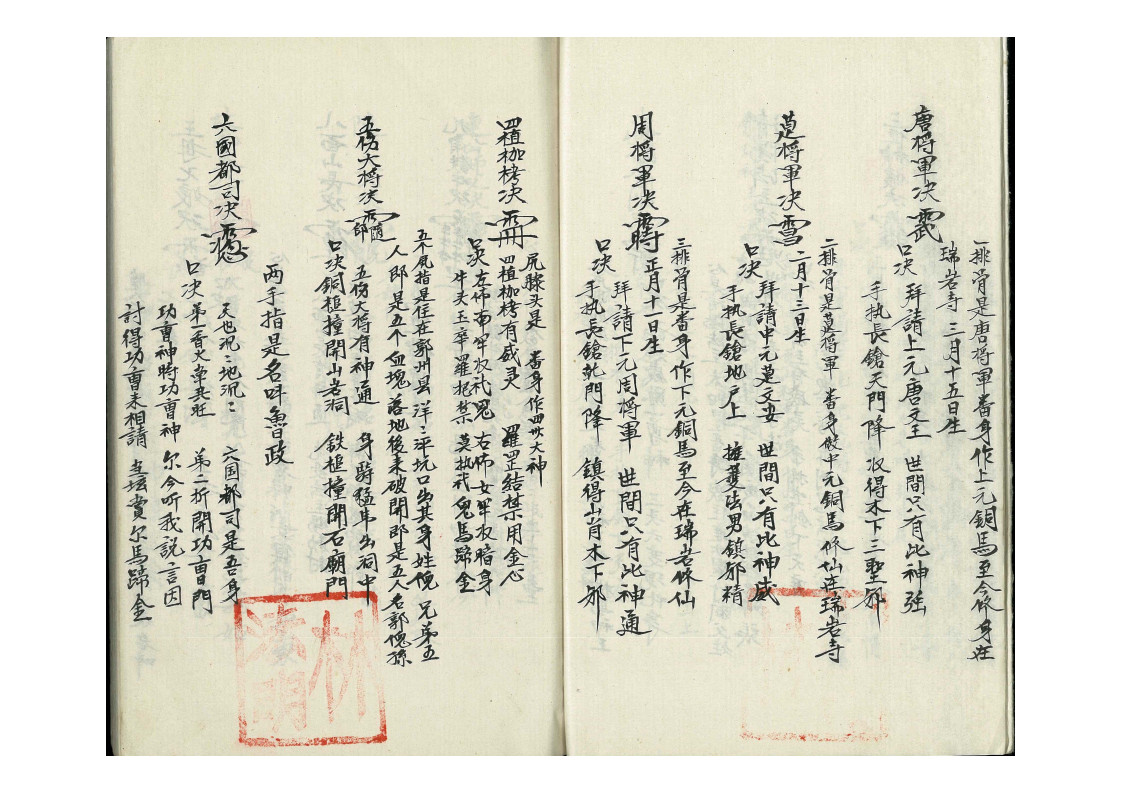 唐將軍决
一排骨是唐將軍番身作上元銅馬至今修身在
瑞岩寺 三月十五日生
口决 拜請上元唐文王 世間只有此神強
手执長鎗天門降 收得木下三聖邪
將軍决
二排骨是將軍 番身做中元銅馬修仙在瑞岩寺
二月十三日生
口决 拜請中元文安 世間只有此神威
手执長鎗地户上 法男鎮邪精
周將軍决
三排骨是番身作下元銅馬至今在瑞岩修仙
正月十一日生
口决 拜請下元周將軍 世間只有此神通
手执長鎗門降 鎮得山肖木下邪
四植枷栲决
尻膝头是 番身作四州大神
四植枷栲有威灵 羅罡結禁用金心
口决左佈南牢收鬼 右佈女牢收暗身
牛头玉辛羅把禁 莫执鬼馬蹄金
五傷大將决
五个尻指是住在郭州县洋洋平坑口出其身姓傀 兄弟五
人即是五个血塊落地後來破開即是五人名郭傀孫
五傷大將有神通 身騎猛牛出祠中
口决銅槌撞開山岩洞 鉄槌撞開石廟門
兩手指是名魯政
六國都司决
天也沉沉地沉沉 六国都司是吾身
口决第一香火 旺 第二折開功曹門
功曹神時功曹神 尔今听我説言因
討得功曹来相請 坛賞尔馬蹄金
林
法明